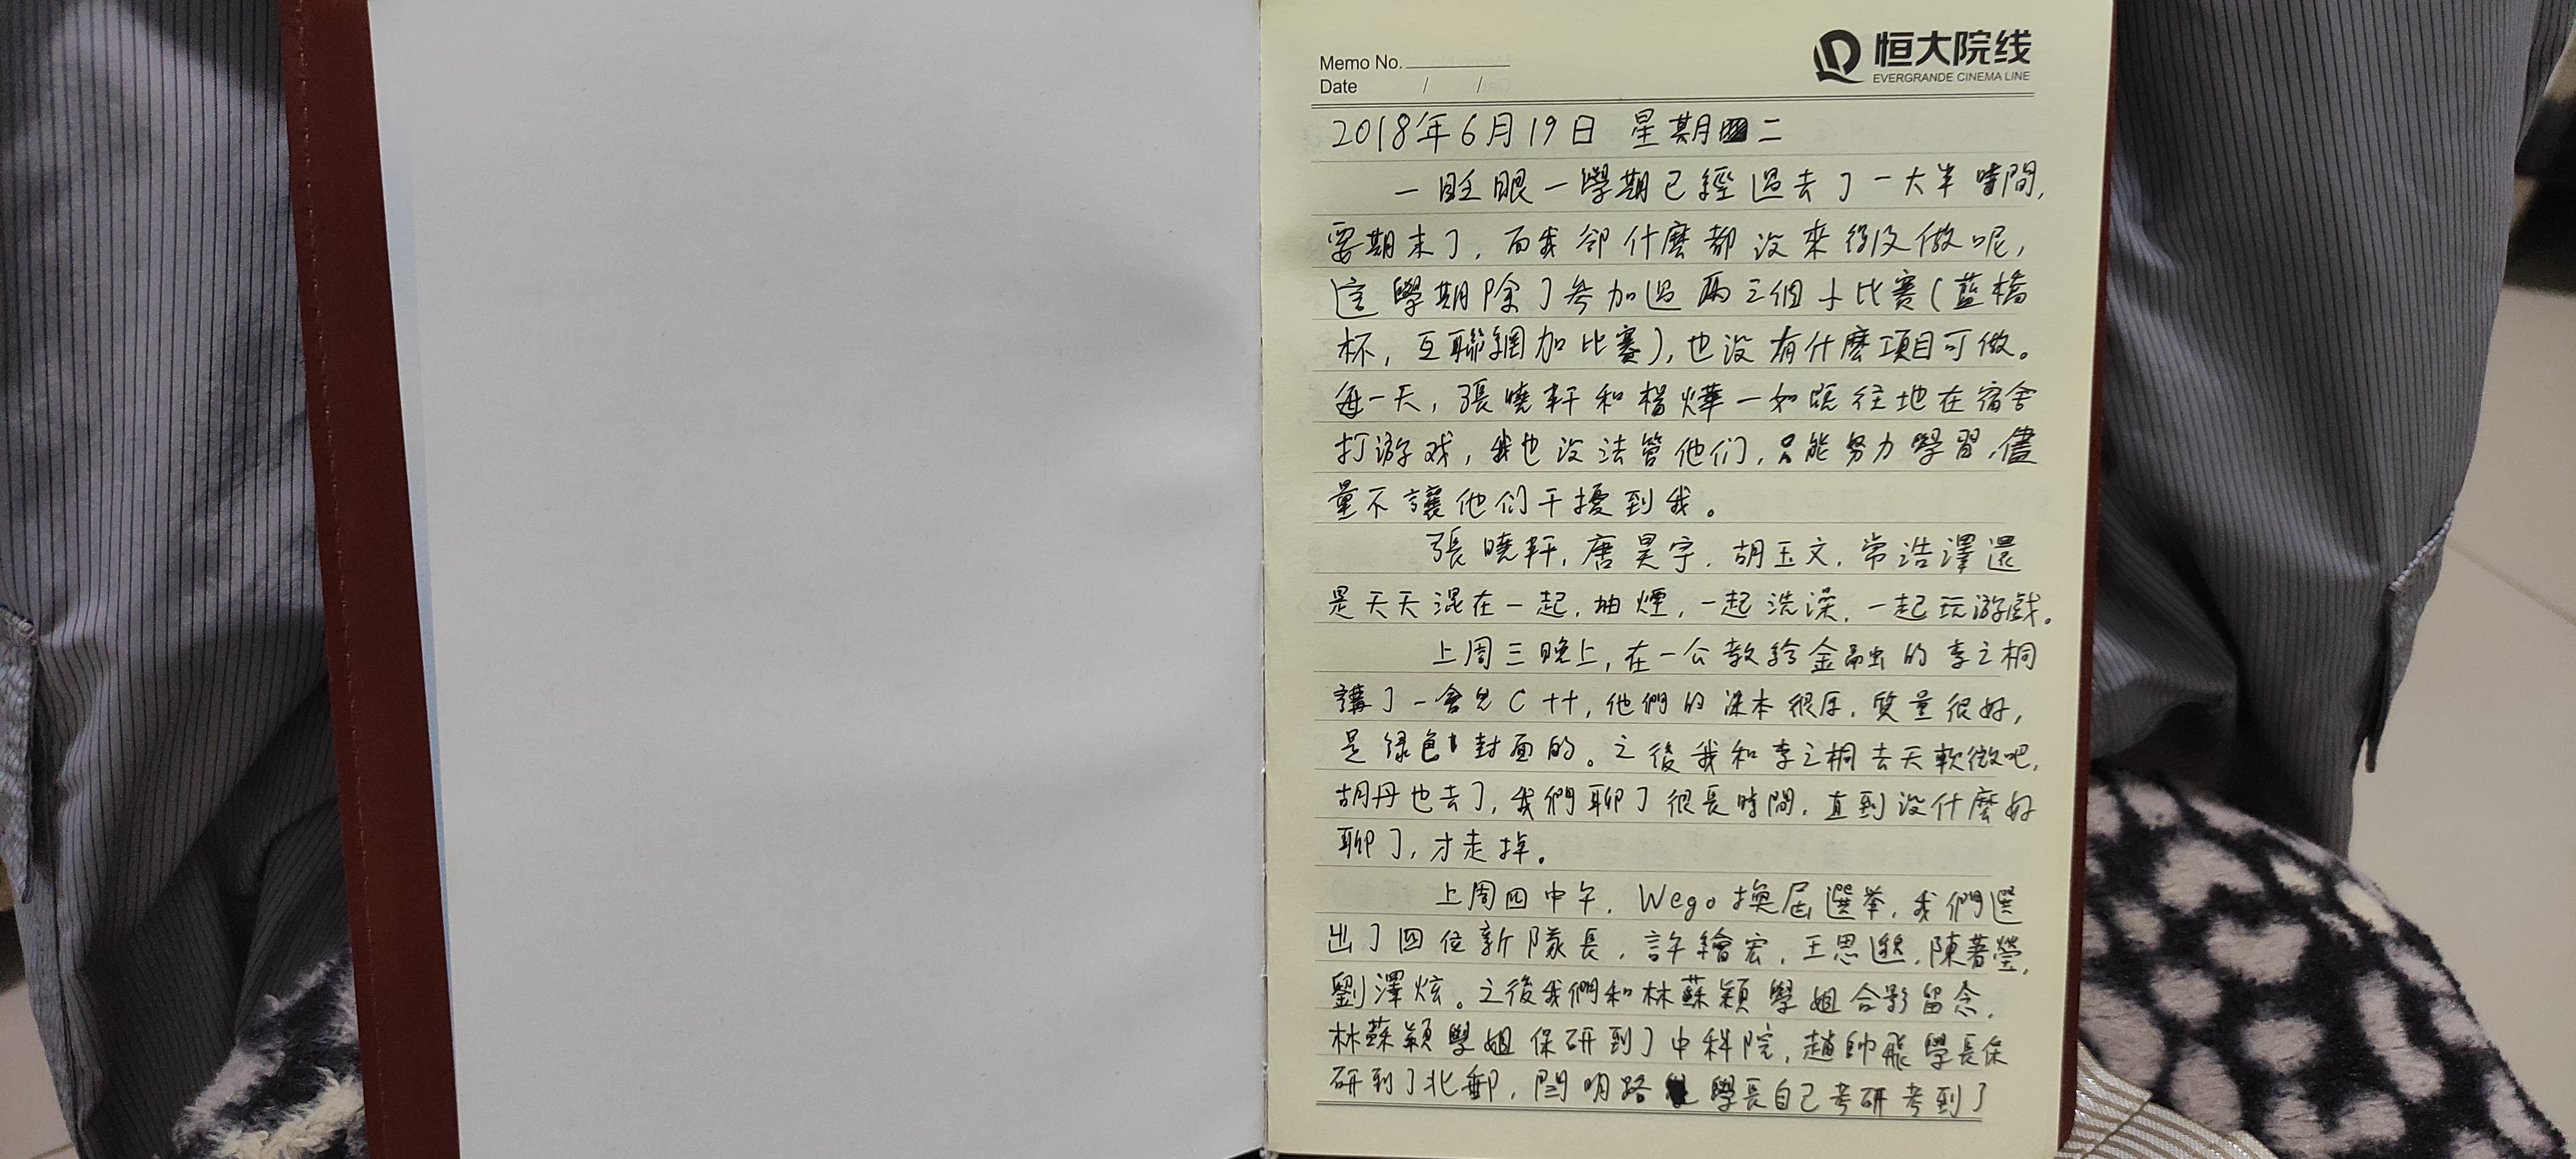 恒大院线
EVERGRANDE CINEMA LINE
Memo No.
Date / /
2018年6月19日 星期二
一眨眼一學期已經過去了一大半時間,
要期末了,而我卻什麼都沒來得及做呢,
這學期除了參加過兩三個小比賽(藍橋
杯,互聯網加比賽),也沒有什麼項目可做。
每一天,張曉軒和楊燁一如既往地在宿舍
打游戏,我也没法管他们,只能努力學習,儘
量不讓他们干擾到我。
張曉軒,唐昊宇,胡玉文,常浩澤還
是天天混在一起,抽煙,一起洗澡,一起玩游戲。
上周三晚上,在一公教給金融的李之桐
講了一會兒C++,他們的課本很厚,質量很好,
是绿色封面的。之後我和李之桐去天軟微吧,
胡丹也去了,我們聊了很長時間,直到没什麼好
聊了,才走掉。
上周四中午,Wego換屆選举,我們選
出了四位新隊長,許繪宏,王思邈,陳著瑩,
劉澤炫。之後我們和林蘇穎學姐合影留念,
林蘇穎學姐保研到了中科院,趙帥飛學長保
研到了北郵,閆明路學長自己考研考到了